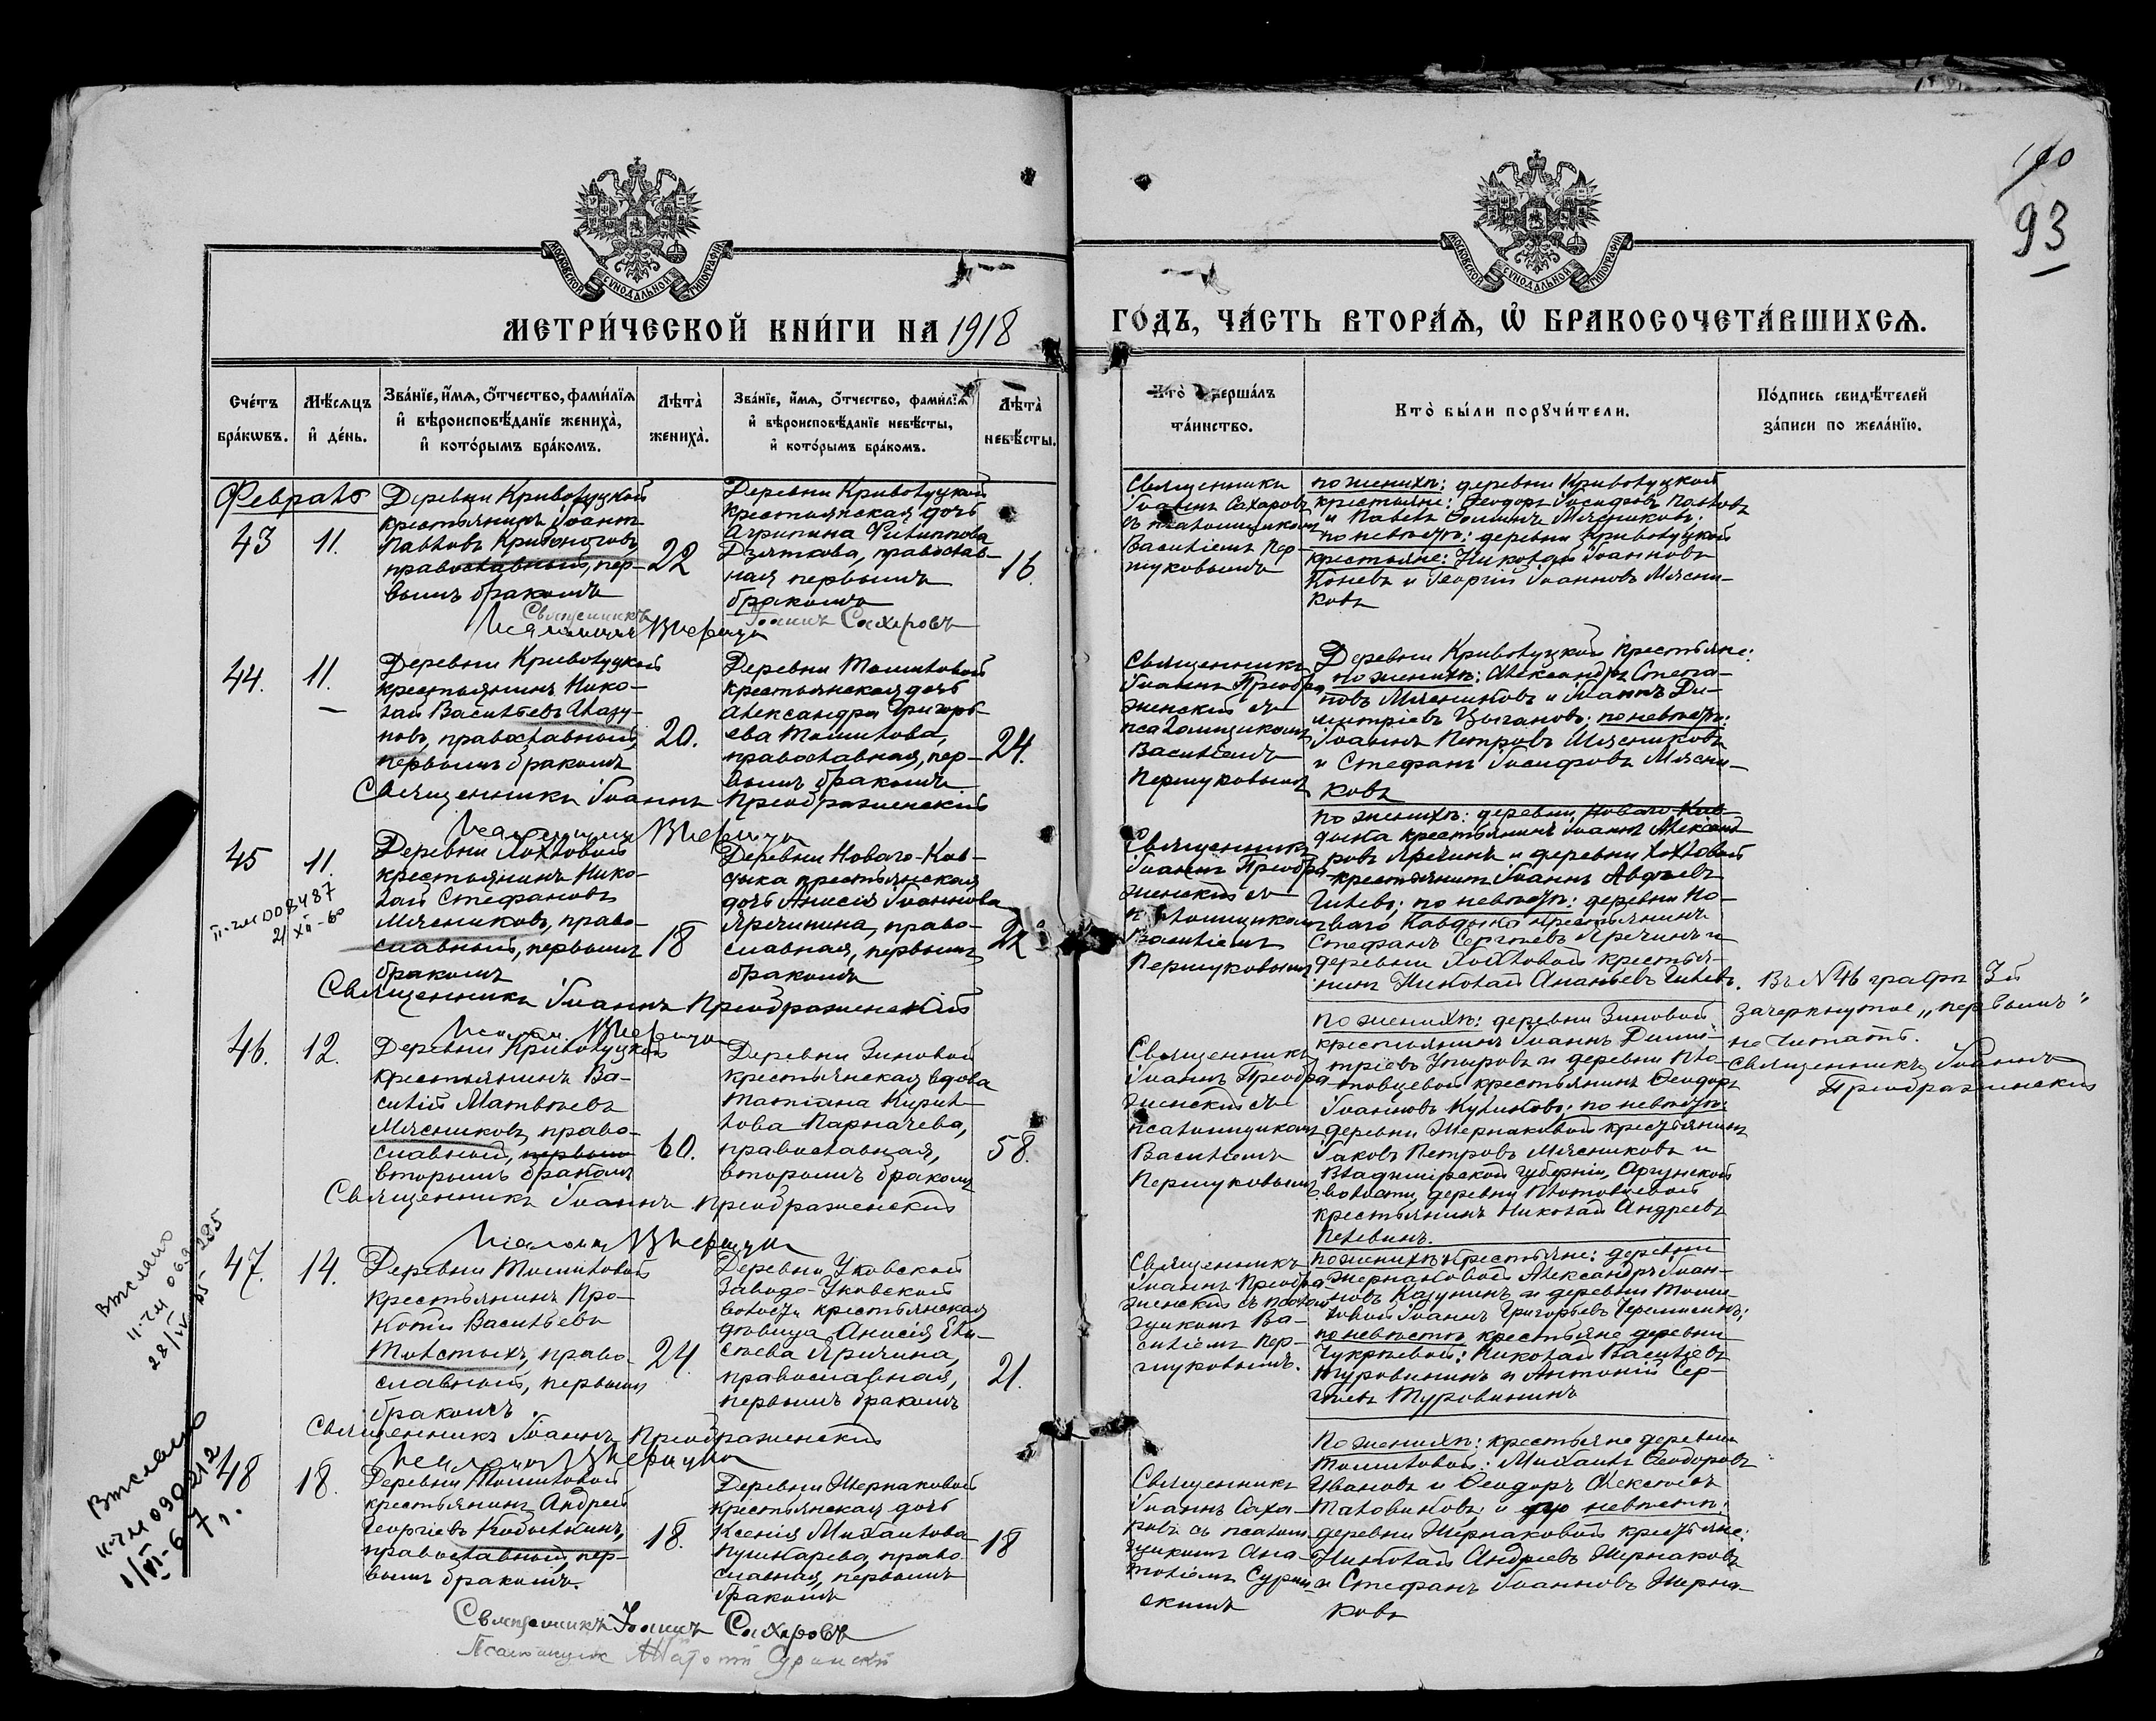 190
93
МОСКОВСКОЙ СѴНОДАЛЬНОЙ ТИПОГРАФІИ
МОСКОВСКОЙ СѴНОДАЛЬНОЙ ТИПОГРАФІИ
МЕТРИ́ЧЕСКОЙ КНИ́ГИ НА 1918
ГО́ДЪ, ЧА́СТЬ ВТОРА́Ѧ, Ѽ БРАКОСОЧЕТА́ВШИХСѦ.
Сче́тъ бра́кѡвъ.
Мѣ́сѧцъ и҆ де́нь.
Зва́нїе, и҆́мѧ, ѻ҆́тчество, фами́лїѧ и҆ вѣроисповѣ́данїе жениха̀, и҆ кото́рымъ бра́комъ.
Лѣта̀ жениха̀.
Зва́нїе, и҆́мѧ, ѻ҆́тчество, фами́лїѧ и҆ вѣроисповѣ́данїе невѣ́сты, и҆ кото́рымъ бра́комъ.
Лѣта̀ невѣ́сты.
Кто̀ соверша́лъ та́инство.
Кто̀ бы́ли порꙋчи́тели.
По́дпись свидѣ́телей за́писи по жела́нїю.
Февраль
43
11.
Деревни Криволуцкой
крестьянинъ Іоаннъ
Павловъ Кривоноговъ,
православный, пер-
вымъ бракомъ
22
Деревни Криволуцкой
крестьянская дочь
Агрипина Филиппова
Дзяткова, православ-
ная первымъ
бракомъ
16.
Священникъ
Іоаннъ Сахаровъ
съ псаломщикомъ
Василіемъ Пер-
шуковымъ
по женихѣ: деревни Криволуцкой
крестьяне: Ѳеодоръ Іосифовъ
и Павелъ Ѳоминъ Мясниковъ;
по невѣстѣ: деревни Криволуцкой
крестьяне: Николай Іоанновъ
Коневъ и Георгій Іоанновъ Мясни-
ковъ
Священникъ Іоаннъ Сахаровъ
44.
11.
Деревни Криволуцкой
крестьянинъ Нико-
лай Васильевъ
православный,
первымъ бракомъ
20.
Деревни Томиловой
крестьянская дочь
Александра Григорь-
ева Томилова,
православная, пер-
вымъ бракомъ
24.
Священникъ
Іоаннъ Преобра-
женскій съ
псаломщикомъ
Василіемъ
Першуковымъ
Деревни Криволуцкой крестьяне:
по женихѣ: Александръ Степа-
новъ Мясниковъ и Іоаннъ Ди-
митріевъ Цыгановъ; по невѣстѣ:
Іоаннъ Петровъ Мясниковъ
и Стефанъ Іосифовъ Мясни-
ковъ
Священникъ Іоаннъ Преображенскій
45
11.
Деревни Хохловой
крестьянинъ Нико-
лай Стефановъ
Мясниковъ, право-
славный, первымъ
бракомъ
18
Деревни Новаго-Кав-
дыка крестьянская
дочь Анисія Іоаннова
Яречинина, право-
славная, первымъ
бракомъ
22
Священникъ
Іоаннъ Преобра-
женскій съ
псаломщикомъ
Василіемъ
Першуковымъ
по женихѣ: деревни Новаго-Кав-
дыка крестьянинъ Іоаннъ Александ-
ровъ Яречинъ и деревни Хохловой
крестьянинъ Іоаннъ Авдѣевъ
по невѣстѣ: деревни Но-
ваго Кавдыка крестьянинъ
Стефанъ Сергѣевъ Яречинъ и
деревни Хохловой крестья-
нинъ Николай Ананьевъ
Священникъ Іоаннъ Преображенскій
II-чм 008487
21 XII-60
46.
12.
Деревни Криволуцкой
крестьянинъ Ва-
силій Матвѣевъ
Мясниковъ, право-
славный, первымъ
вторымъ бракомъ
60.
Деревни Зиновой
крестьянская вдова
Татіана Кирил-
лова Парначева,
православная,
вторымъ бракомъ
58.
Священникъ
Іоаннъ Преобра-
женскій съ
псаломщикомъ
Василіемъ
Першуковымъ
по женихѣ: деревни Зиновой
крестьянинъ Іоаннъ Дими-
тріевъ и деревни Пло-
товцевой крестьянинъ Ѳеодоръ
Іоанновъ Куликовъ; по невѣстѣ:
деревни Жернаковой крестьянинъ
Іаковъ Петровъ Мясниковъ и
Владимірской губерніи, Аргунской
волости, деревни
крестьянинъ Николай Андреевъ
Пелевинъ.
Въ № 46 графы 3й
зачеркнутое „первымъ“
не читать.
Священникъ Іоаннъ
Преображенскій
Священникъ Іоаннъ Преображенскій
47.
14.
Деревни Томиловой
крестьянинъ Про-
копій Васильевъ
Толстыхъ, право-
славный, первымъ
бракомъ.
24.
Деревни Уковской
Заводо-Уковской
волости крестьянская
дѣвица Анисія Ели-
сѣева Яричина,
православная,
первымъ бракомъ
21.
Священникъ
Іоаннъ Преобра-
женскій съ псалом-
щикомъ Ва-
силіемъ Пер-
шуковымъ.
по женихѣ крестьяне: деревни
Жернаковой Александръ Іоан-
новъ Казунинъ и деревни Томи-
ловой Іоаннъ Григорьевъ Черемисинъ;
по невѣстѣ крестьяне деревни
Чукрѣевой: Николай Василіевъ
Туровининъ и Антоній Сер-
гѣевъ Туровининъ
Священникъ Іоаннъ Преображенскій
Выслано
28/IV-55
48
18.
Деревни Томиловой
крестьянинъ Андрей
Георгіевъ Кобылкинъ,
православный, пер-
вымъ бракомъ.
18.
Деревни Жернаковой
крестьянская дочь
Ксенія Михаилова
Пушкарева, право-
славная, первымъ
бракомъ
18
Священникъ
Іоаннъ Саха-
ровъ съ псалом-
щикомъ Ана-
толіемъ Сурин-
скимъ
По женихѣ: крестьяне деревни
Томиловой: Михаилъ Ѳеодоровъ
Ивановъ и Ѳеодоръ Алексѣевъ
и по невѣстѣ:
деревни Жернаковой крестьяне:
Николай Андреевъ Жернаковъ
и Стефанъ Іоанновъ Жерна-
ковъ
Выслано
II-чм 090212
1/VI-67 г.
Священникъ Іоаннъ Сахаровъ
Псаломщик Анатолій Суринскій